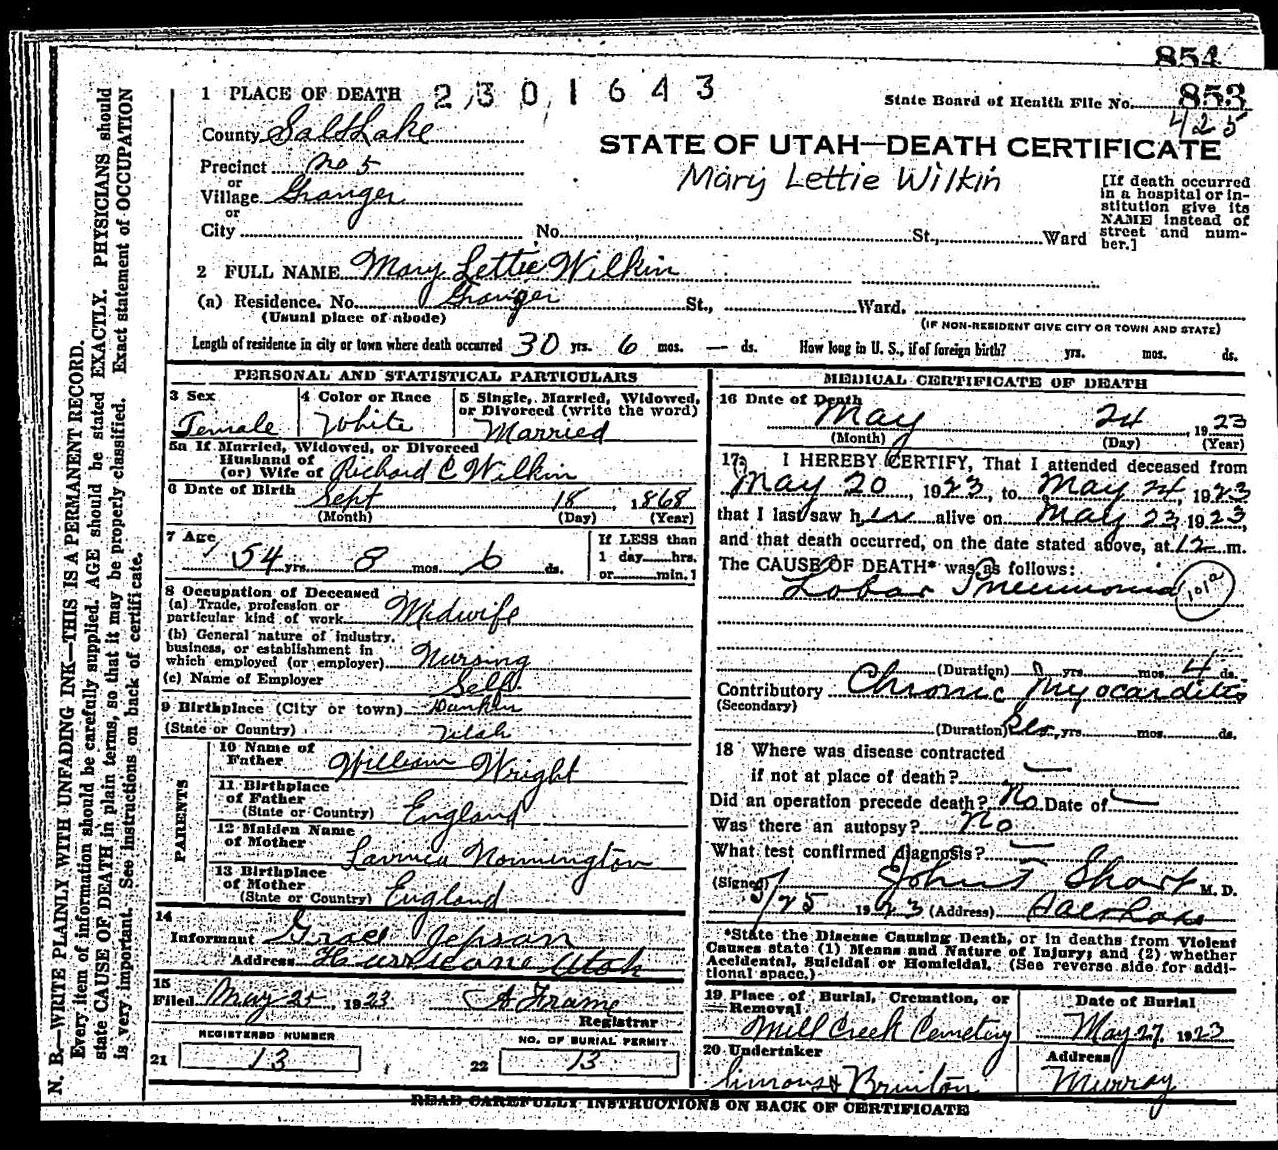 854
1 PLACE OF DEATH 2301643
State Board of Health File No. 853
425
County Salt Lake
STATE OF UTAH—DEATH CERTIFICATE
Precinct No 5
Mary Lettie Wilkin
or
Village Granger
or
City No. St., Ward
[If death occurred
in a hospital or in-
stitution give its
NAME instead of
street and num-
ber.]
2 FULL NAME Mary Lettie Wilkin
(a) Residence. No. Granger St., Ward.
(Usual place of abode)
(IF NON-RESIDENT GIVE CITY OR TOWN AND STATE)
Length of residence in city or town where death occurred 30 yrs. 6 mos. — ds. How long in U. S., if of foreign birth? yrs. mos. ds.
PERSONAL AND STATISTICAL PARTICULARS
3 Sex
Female
4 Color or Race
White
5 Single, Married, Widowed,
or Divorced (write the word)
Married
5a If Married, Widowed, or Divorced
Husband of
(or) Wife of Richard C Wilkin
6 Date of Birth Sept 18, 1868
(Month) (Day) (Year)
7 Age
54 yrs. 8 mos. 6 ds.
If LESS than
1 day hrs.
or min.]
8 Occupation of Deceased
(a) Trade, profession or
particular kind of work Midwife
(b) General nature of industry,
business, or establishment in
which employed (or employer) Nursing
(c) Name of Employer Self
9 Birthplace (City or town)
(State or Country) Utah
PARENTS
10 Name of
Father William Wright
11 Birthplace
of Father
(State or Country) England
12 Maiden Name
of Mother Nonnington
13 Birthplace
of Mother
(State or Country) England
14
Informant Grace Jepson
Address Hurricane Utah
15
Filed May 25, 1923 A Frame
Registrar
REGISTERED NUMBER
21 13
NO. OF BURIAL PERMIT
22 13
MEDICAL CERTIFICATE OF DEATH
16 Date of Death
May 24, 1923
(Month) (Day) (Year)
17 I HEREBY CERTIFY, That I attended deceased from
May 20, 1923, to May 24, 1923
that I last saw her alive on May 23, 1923,
and that death occurred, on the date stated above, at 12 m.
The CAUSE OF DEATH* was as follows:
Lobar Pneumonia 101a
(Duration) yrs. mos. 4 ds.
Contributory Chronic Myocarditis
(Secondary)
(Duration) yrs. mos. ds.
18 Where was disease contracted
if not at place of death? —
Did an operation precede death? No Date of —
Was there an autopsy? No
What test confirmed diagnosis? —
(Signed) John T Short M. D.
5/25 1923 (Address) Salt Lake
*State the Disease Causing Death, or in deaths from Violent
Causes state (1) Means and Nature of Injury; and (2) whether
Accidental, Suicidal or Homicidal. (See reverse side for addi-
tional space.)
19 Place of Burial, Cremation, or
Removal
Mill Creek Cemetery
Date of Burial
May 27, 1923
20 Undertaker
Address
Murray
READ CAREFULLY INSTRUCTIONS ON BACK OF CERTIFICATE
N. B.—WRITE PLAINLY WITH UNFADING INK—THIS IS A PERMANENT RECORD.
Every item of information should be carefully supplied. AGE should be stated EXACTLY. PHYSICIANS should
state CAUSE OF DEATH in plain terms, so that it may be properly classified. Exact statement of OCCUPATION
is very important. See instructions on back of certificate.